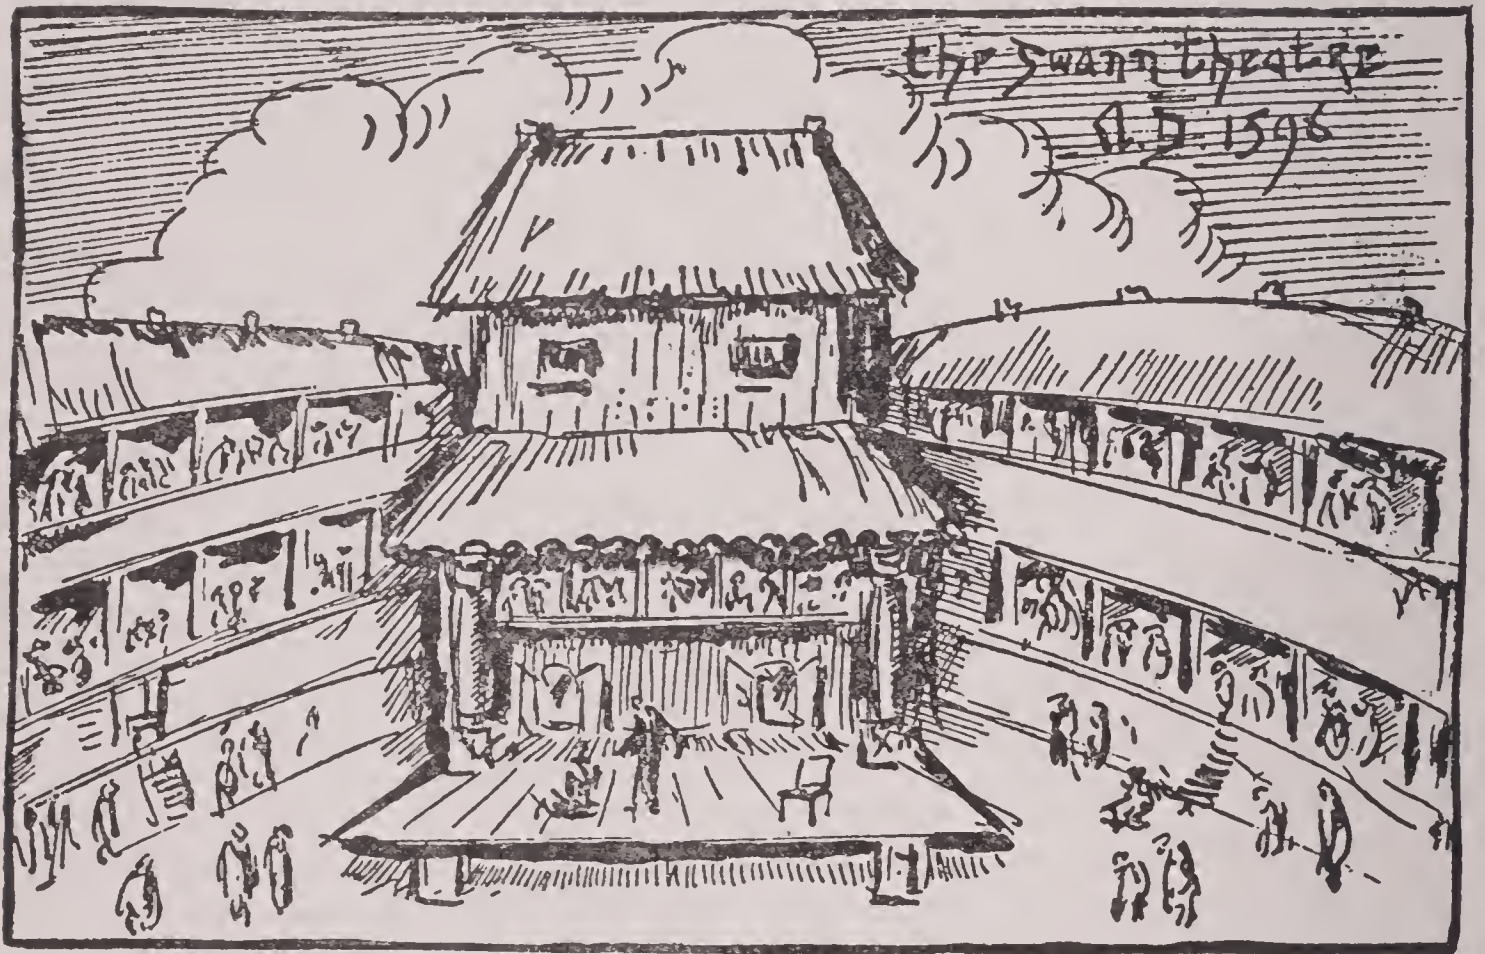 the Swann theatre
A.D. 1596